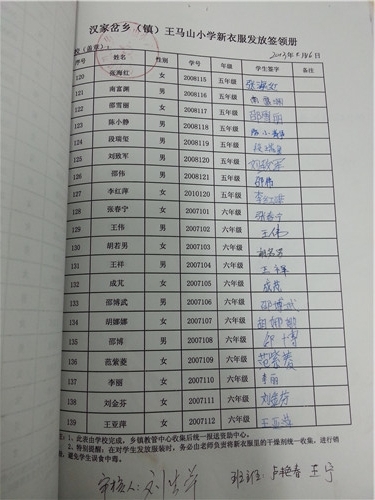 汉家岔乡（镇）王马山小学新衣服发放签领册
校（盖章）： 2013年5月16日
序号 姓名 性别 学号 年级 学生签字 备注
120 张海红 女 2008115 五年级 张海红
121 南富渊 男 2008116 五年级 南富渊
122 邵雪丽 女 2008117 五年级 邵雪丽
123 陈小静 男 2008118 五年级 陈小静
124 段瑞玺 男 2008119 五年级 段瑞玺
125 刘致军 男 2008120 五年级 刘致军
126 邵伟 男 2008121 五年级 邵伟
127 李红萍 女 2010120 五年级 李红萍
128 张春宁 女 2007101 六年级 张春宁
129 王伟 男 2007102 六年级 王伟
130 胡若男 女 2007103 六年级 胡若男
131 王祥 男 2007104 六年级 王祥
132 成芃 女 2007105 六年级 成芃
133 邵博武 男 2007106 六年级 邵博武
134 胡娜娜 女 2007107 六年级 胡娜娜
135 邵博 男 2007108 六年级 邵博
136 范紫菱 女 2007109 六年级 范紫菱
137 李丽 女 2007110 六年级 李丽
138 刘金芬 女 2007111 六年级 刘金芬
139 王亚萍 女 2007112 六年级 王亚萍
注：1、此表由学校完成，乡镇教管中心收集后统一报送资助中心。
2、特别提醒：在对学生发放服装时，务必由老师负责将新衣服里的干燥剂统一收集，进行销
毁，避免学生误食中毒。
审核人：